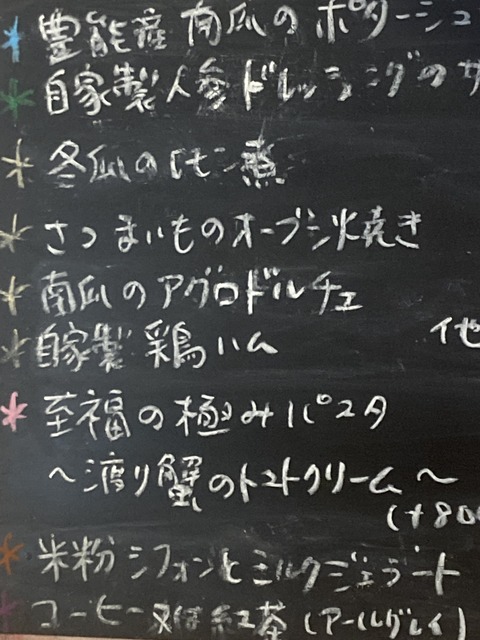 * 豊能産 南瓜のポタージュ
* 自家製人参ドレッシングのサ
* 冬瓜のレモン煮
* さつまいものオーブン焼き
* 南瓜のアグロドルチェ
* 自家製 鶏ハム
他
* 至福の極みパスタ
〜渡り蟹のトマトクリーム〜
(+800
* 米粉シフォンとミルクジェラート
* コーヒー又は紅茶 (アールグレイ)